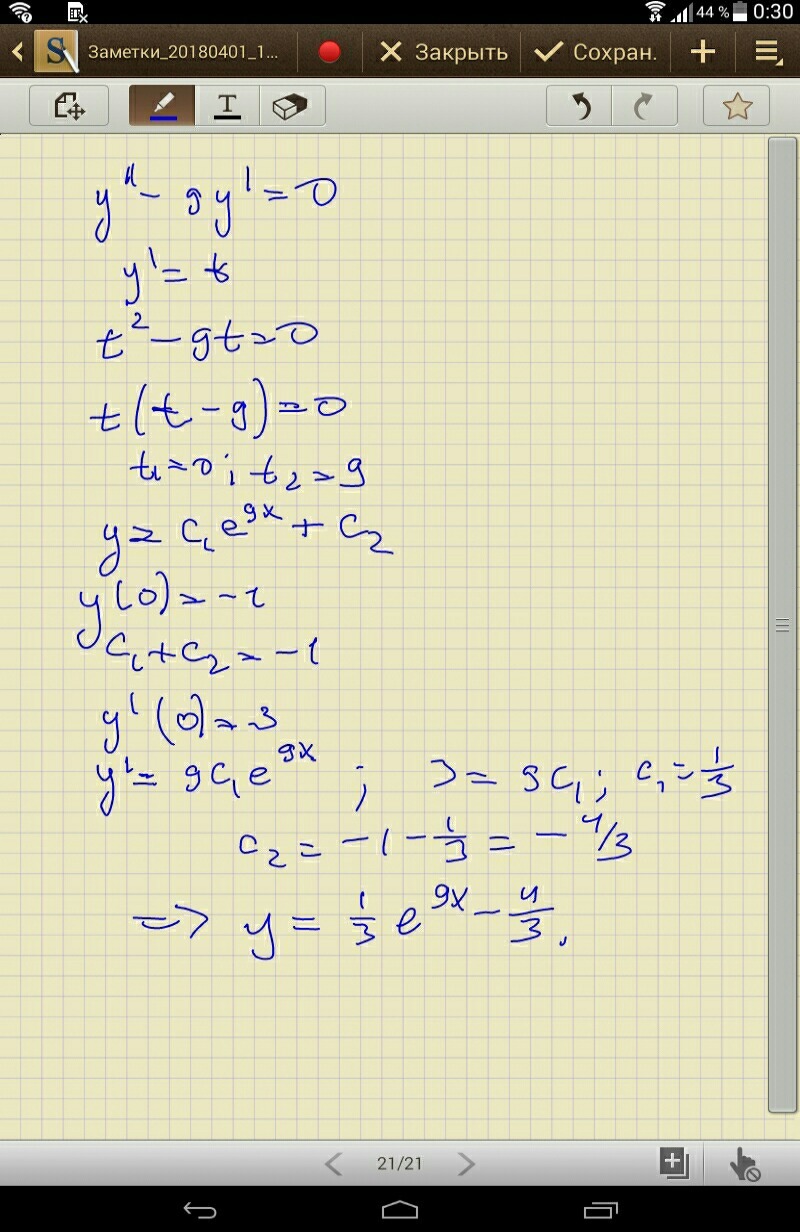 44 % 0:30
S Заметки_20180401_1... Закрыть Сохран.
T
y'' - 9y' = 0
y' = t
t² - 9t = 0
t(t - 9) = 0
t₁ = 0; t₂ = 9
y = C₁e^9x + C₂
y(0) = -1
C₁ + C₂ = -1
y'(0) = 3
y' = 9C₁e^9x ; 3 = 9C₁; C₁ = 1/3
C₂ = -1 - 1/3 = -4/3
=> y = 1/3 e^9x - 4/3.
21/21